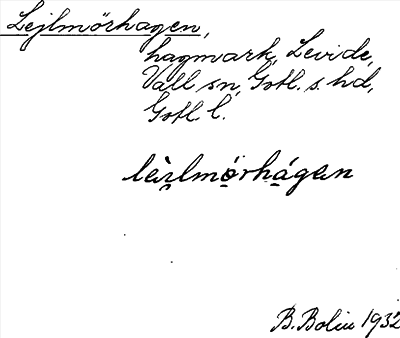 Lejlmörhagen,
hagmark, Levide,
Vall sn, Gotl. s. hd,
Gotl. l.
lèi̯lmö̱́rhá̱gan
B. Bolin 1932